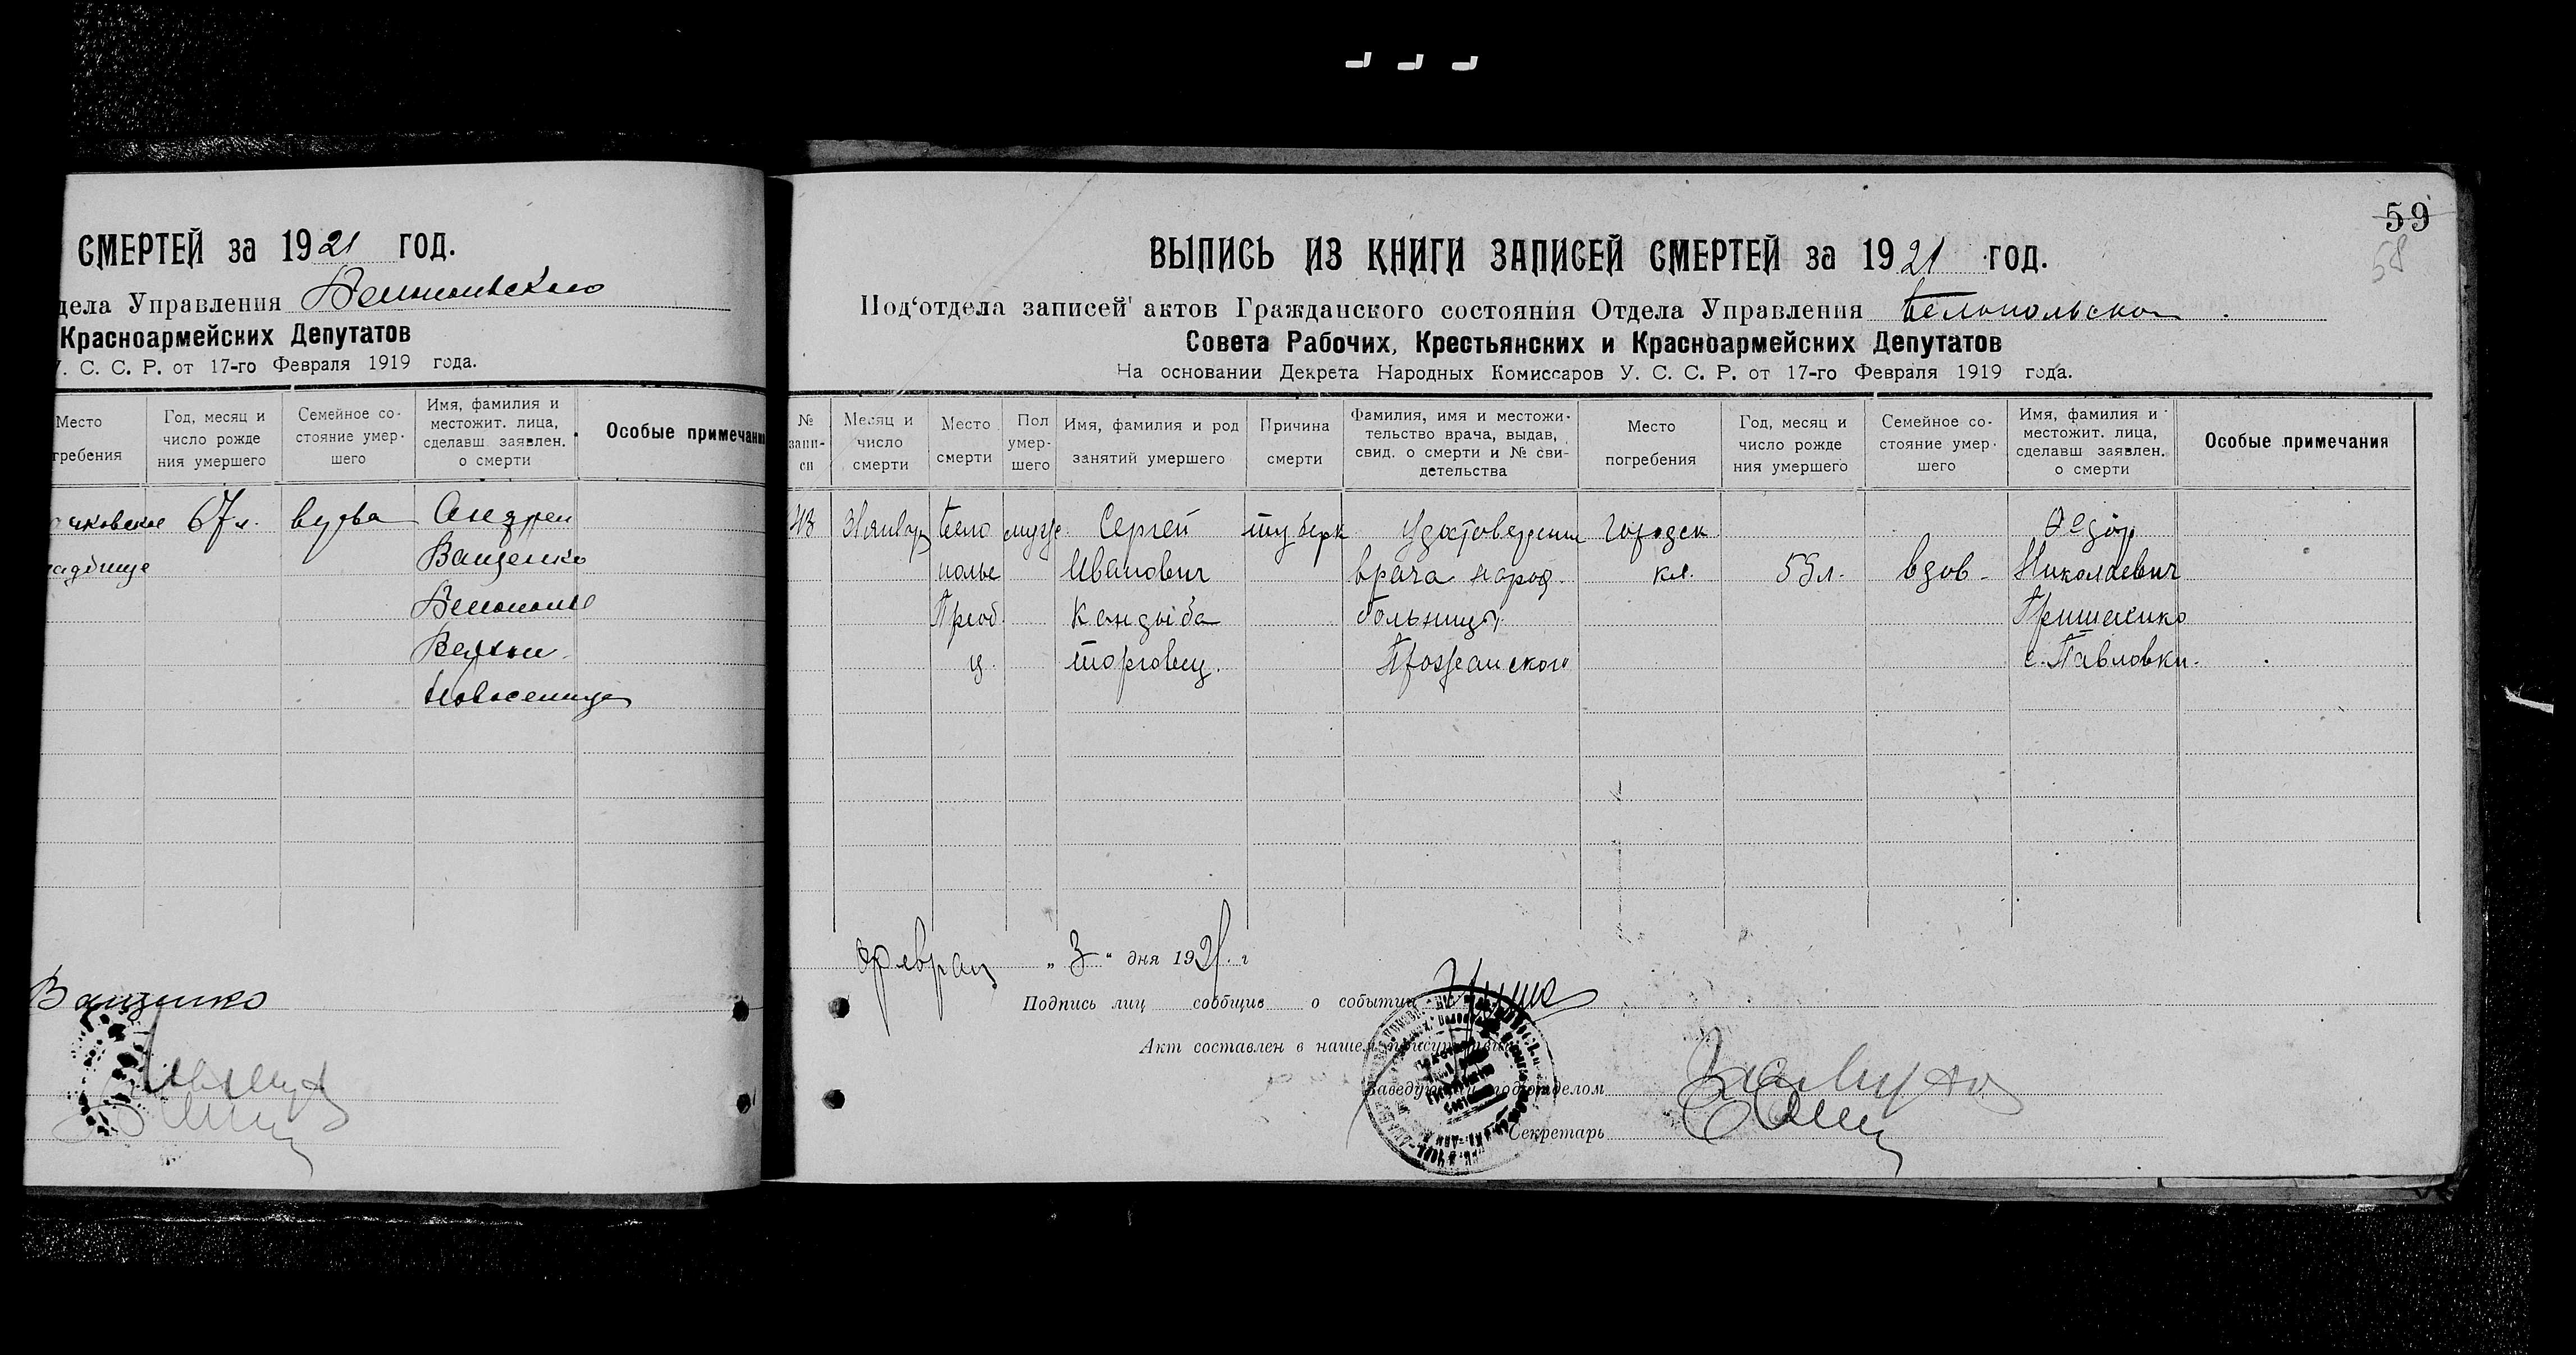 СМЕРТЕЙ за 1921 год.
дела Управления Белопольского
Красноармейских Депутатов
У. С. С. Р. от 17-го Февраля 1919 года.
Место гребения
Год, месяц и число рожде ния умершего
Семейное со- стояние умер- шего
Имя, фамилия и местожит. лица, сделавш. заявлен. о смерти
Особые примечания
67 л. вдова Андрей
Ващенко
Белополье
Новоселица
Ващенко
59
58
ВЫПИСЬ ИЗ КНИГИ ЗАПИСЕЙ СМЕРТЕЙ за 1921 год.
Под‘отдела записей актов Гражданского состояния Отдела Управления Белопольского
Совета Рабочих, Крестьянских и Красноармейских Депутатов
На основании Декрета Народных Комиссаров У. С. С. Р. от 17-го Февраля 1919 года.
№ запи- си
Месяц и число смерти
Место смерти
Пол умер- шего
Имя, фамилия и род занятий умершего
Причина смерти
Фамилия, имя и местожи- тельство врача, выдав, свид. о смерти и № сви- детельства
Место погребения
Год, месяц и число рожде ния умершего
Семейное со- стояние умер- шего
Имя, фамилия и местожит. лица, сделавш заявлен. о смерти
Особые примечания
48 31 январ Бело муж. Сергей туберк Удостоверение Городск Федор
полье Иванович врача народ. кл. 55 л. вдов- Николаевич
Преоб. Кандыба больницы Гришаенко
ц. торговец. с. Павловки.
Феврал „ 3 “ дня 1921. г
Подпись лиц сообщив о событии
Акт составлен в нашем присутствии
Заведующий подотделом
Секретарь